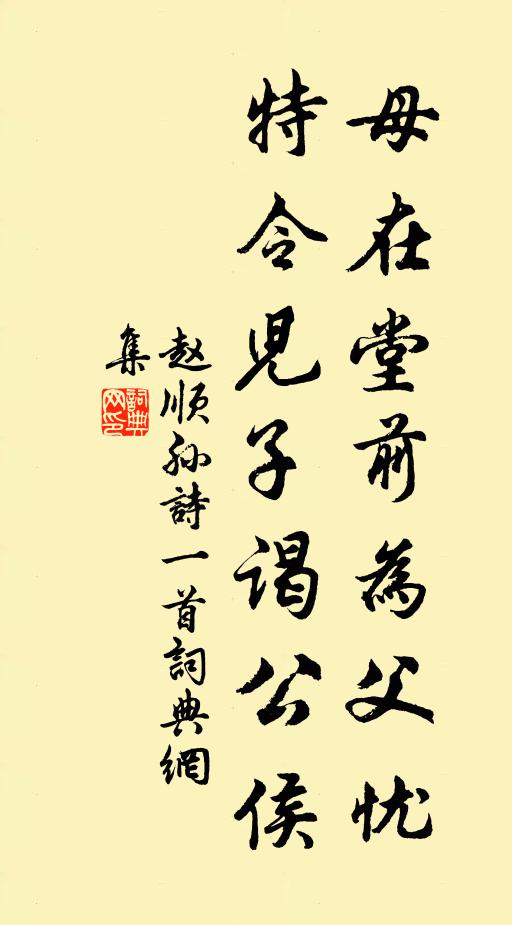 母在堂前為父忧
特令兒子谒公侯
赵顺孙詩一首詞典網
集
詞典网印